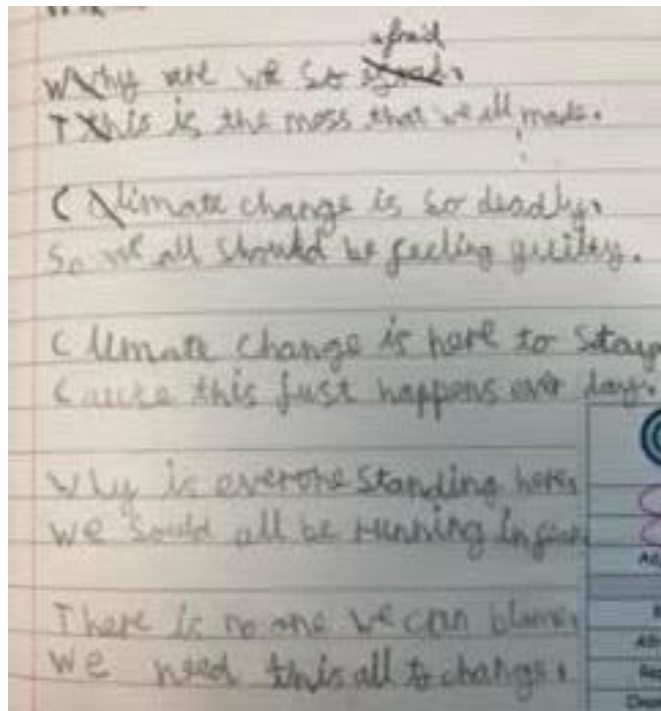 afraid
Why are we so
This is the mess that we all made.
Climate change is so deadly,
So we all should be feeling guiltey.
Climate change is here to stay
Cause this just happens ever day.
Why is everone standing here,
We sould all be running in
There is no one we can blame,
We need this all to change.